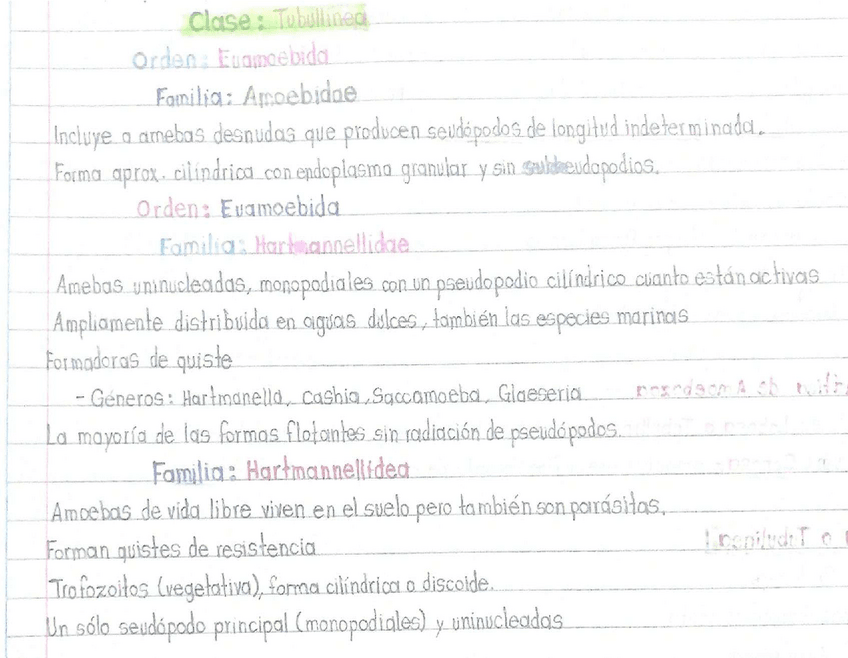 Clase: Tubullinea
Orden: Euamoebida
Familia: Amoebidae
Incluye a amebas desnudas que producen seudópodos de longitud indeterminada.
Forma aprox. cilíndrica con endoplasma granular y sin eudopodios.
Orden: Euamoebida
Familia: Hartmannellidae
Amebas uninucleadas, monopodiales con un pseudopodio cilíndrico cuanto están activas
Ampliamente distribuida en aguas dulces, también las especies marinas
Formadoras de quiste
- Géneros: Hartmanella, Cashia, Saccamoeba, Glaeseria
La mayoría de las formas flotantes sin radiación de pseudópodos.
Familia: Hartmannellidea
Amoebas de vida libre viven en el suelo pero también son parásitas,
Forman quistes de resistencia
Trofozoitos (vegetativa), forma cilíndrica o discoide.
Un sólo seudópodo principal (monopodiales) y uninucleadas